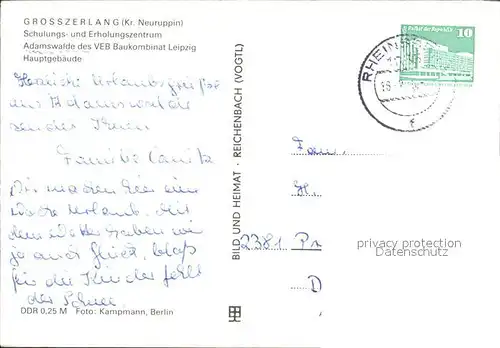 GROSSZERLANG (Kr. Neuruppin)
Schulungs- und Erholungszentrum
Adamswalde des VEB Baukombinat Leipzig
Hauptgebäude
Herzliche Urlaubsgrüße
aus Adamswalde
senden Ihnen
Familie
Wir machen hier eine
Woche Urlaub. Mit
dem Wetter haben wir
ja auch Glück, bloß
für die Kinder fehlt
der Schnee.
DDR 0,25 M Foto: Kampmann, Berlin
BILD UND HEIMAT · REICHENBACH (VOGTL)
10
Palast der Republik
RHEIN
Fam.
H
2381 Pr
D
privacy protection
Datenschutz